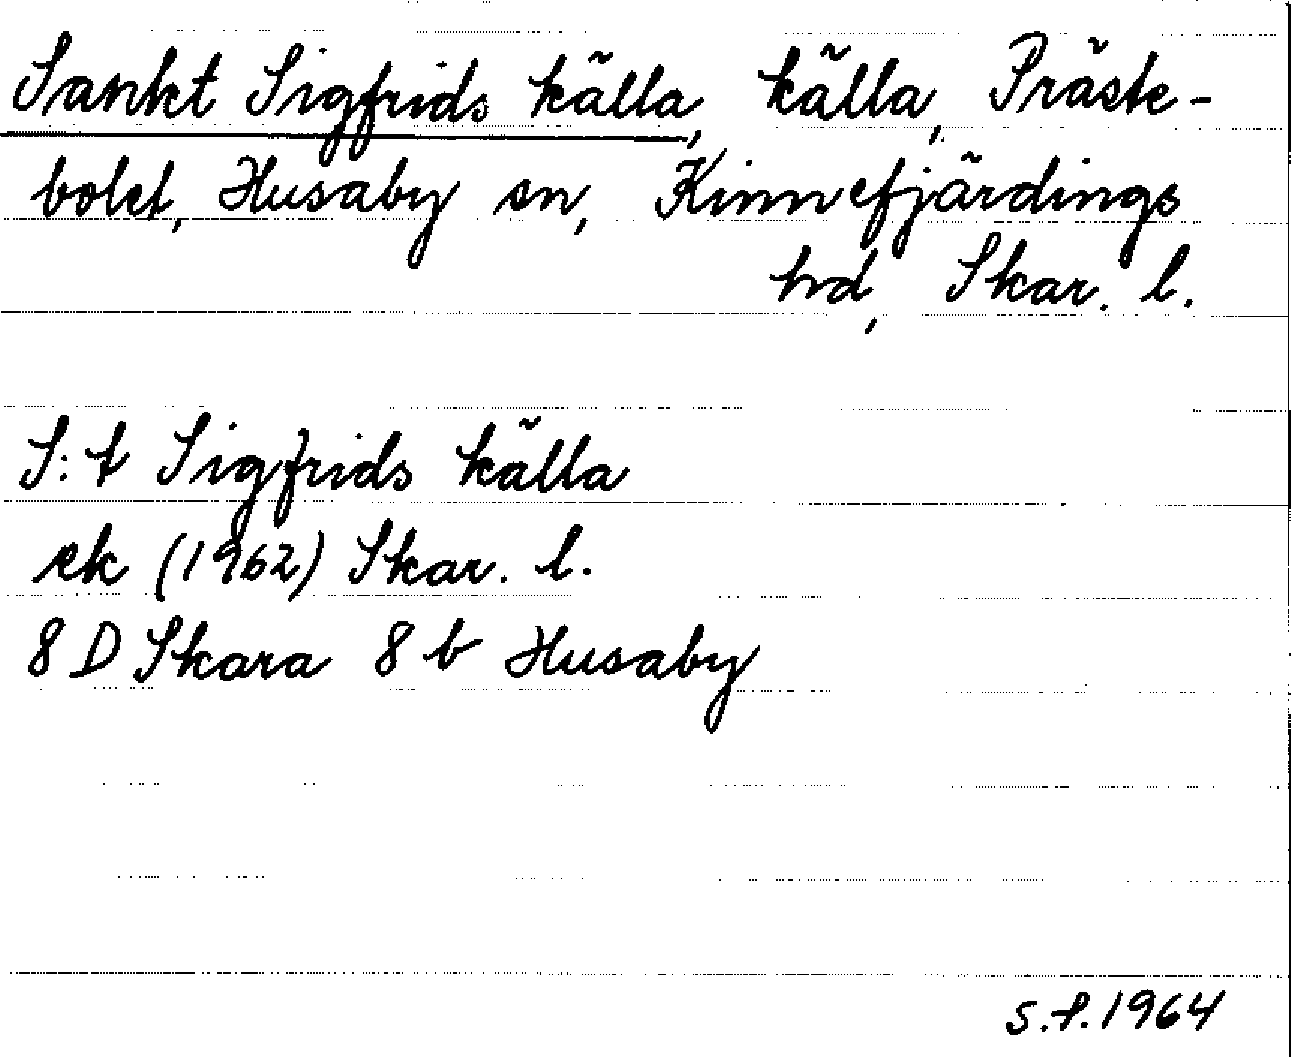 Sankt Sigfrids källa, källa, Präste-
bolet, Husaby sn, Kinnefjärdings
hd, Skar. l.
S:t Sigfrids källa
ek (1962) Skar. l.
8 D Skara 8 b Husaby
S.P. 1964